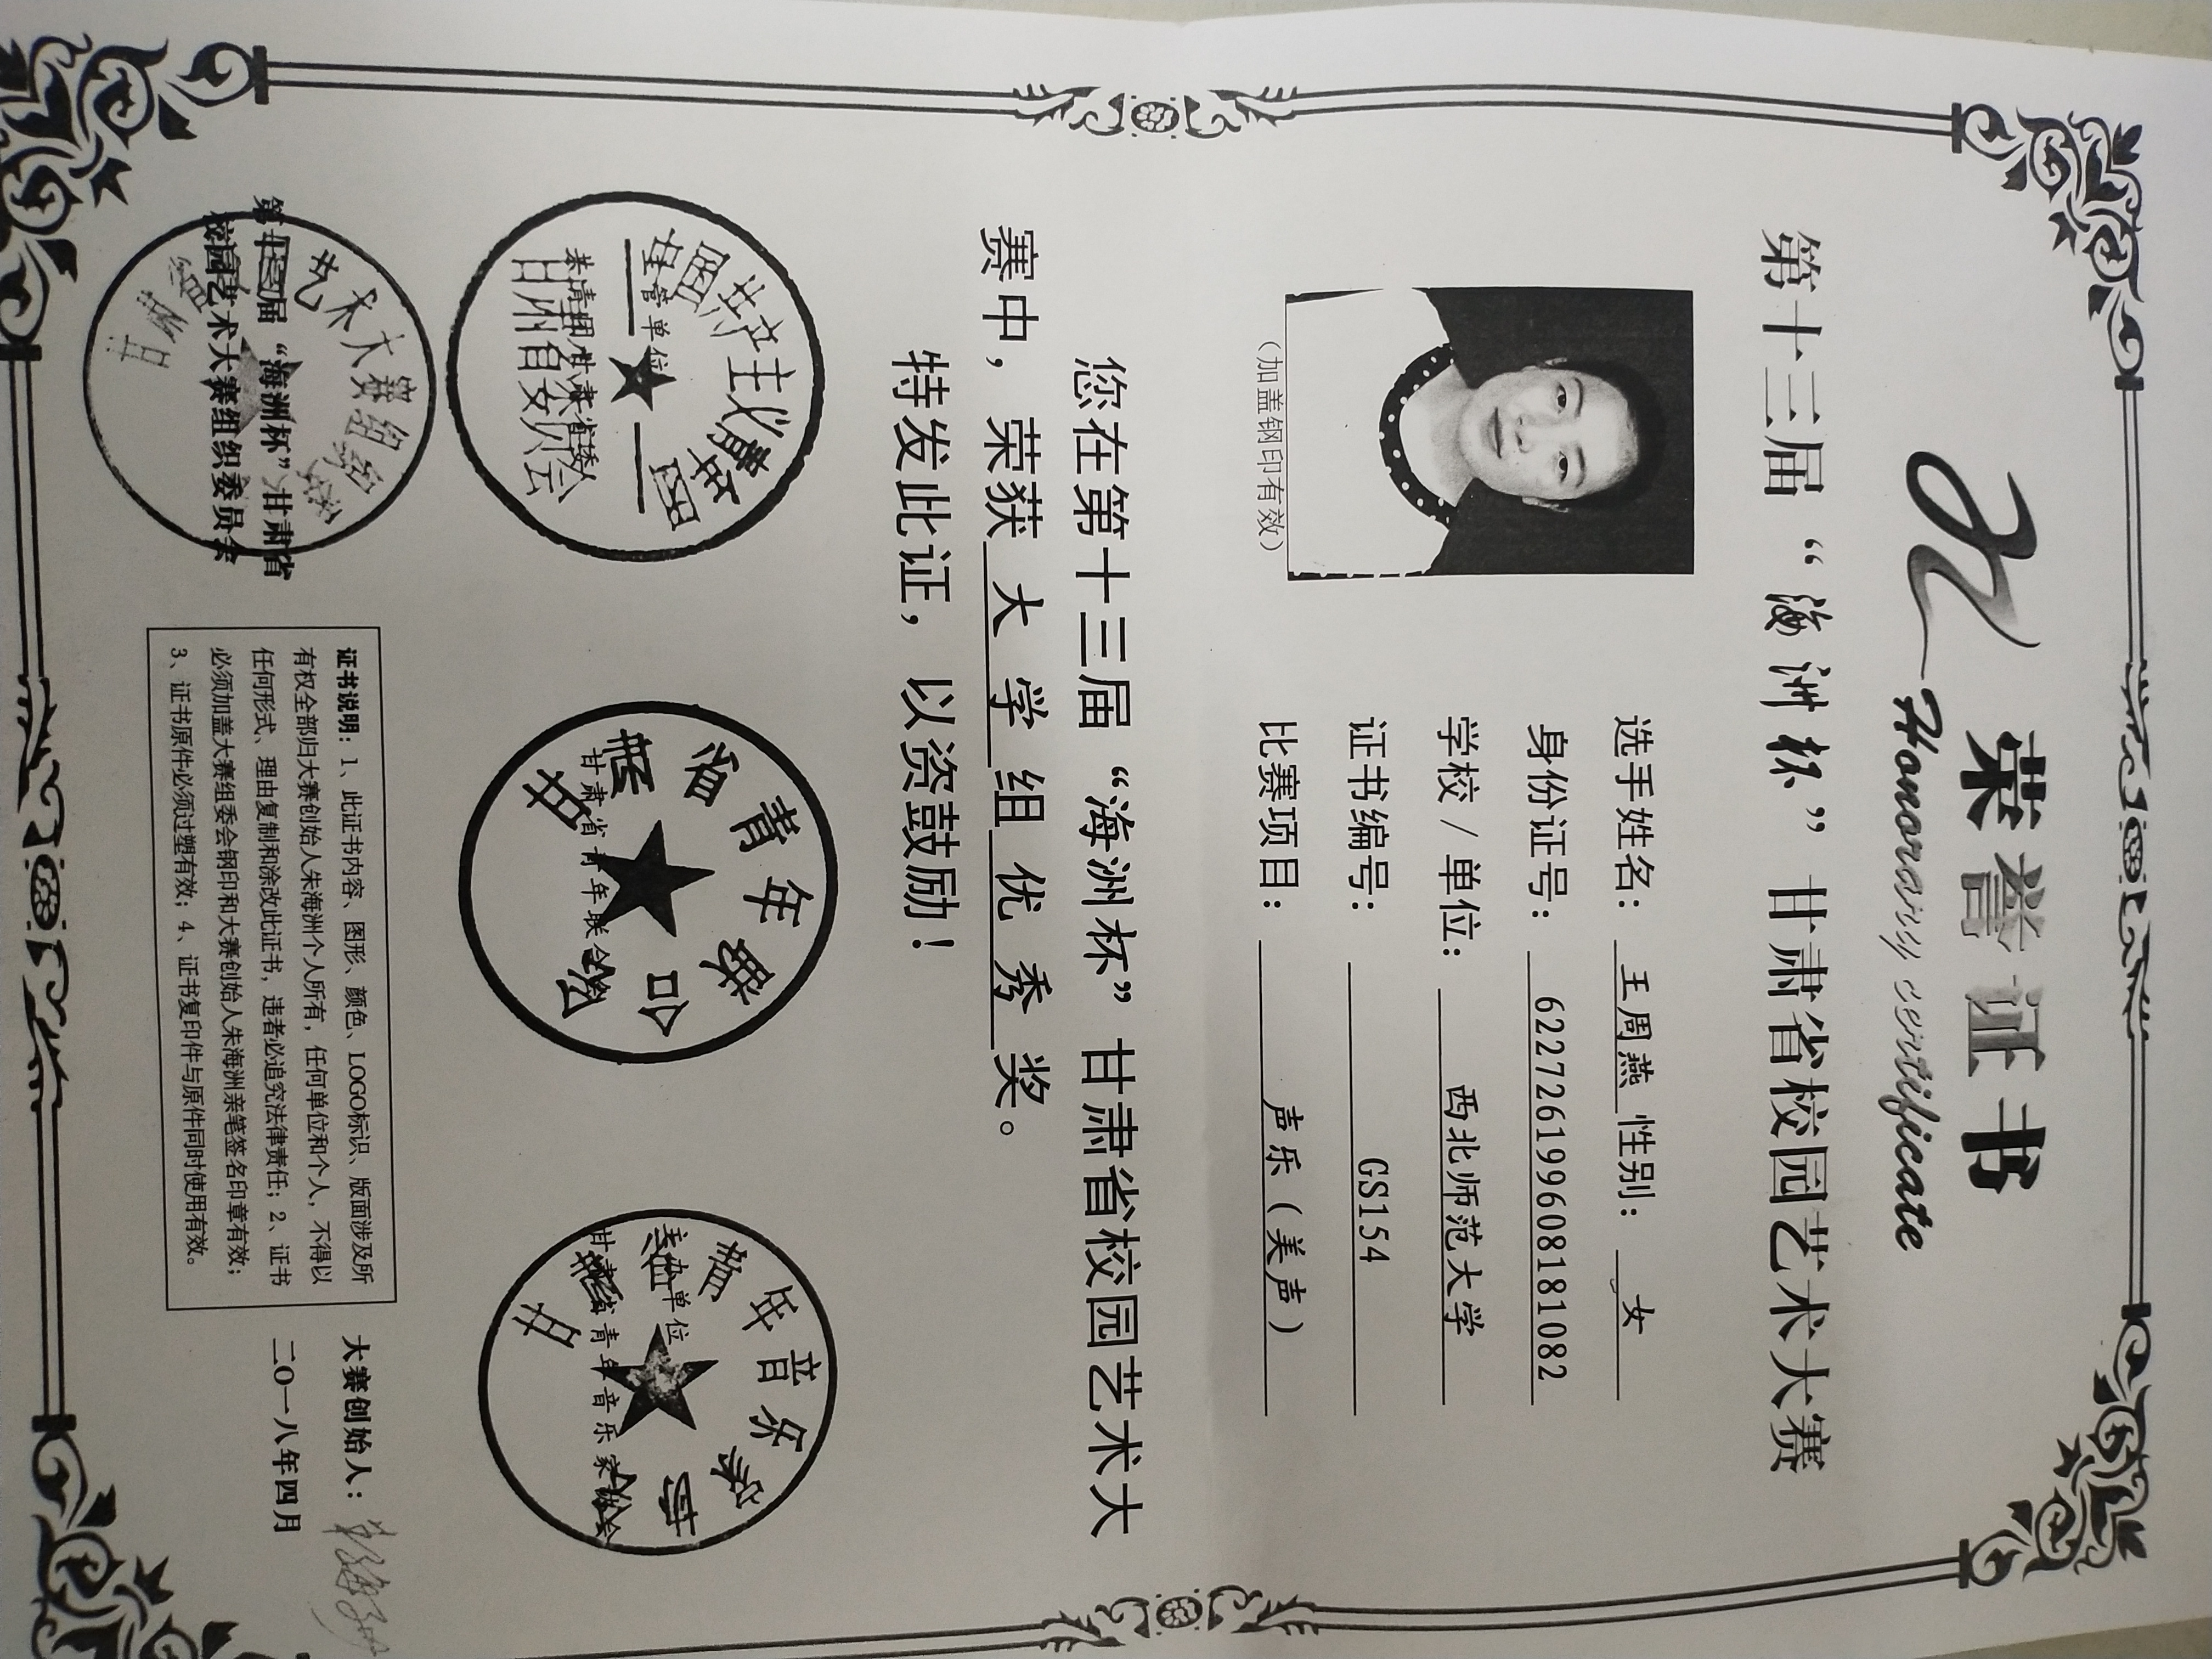 荣誉证书
Honorary certificate
第十三届“海洲杯”甘肃省校园艺术大赛
选手姓名：王周燕 性别：女
身份证号：622726199608181082
学校/单位：西北师范大学
证书编号：GS154
比赛项目：声乐（美声）
（加盖钢印有效）
您在第十三届“海洲杯”甘肃省校园艺术大
赛中，荣获 大学 组 优秀 奖。
特发此证，以资鼓励！
主管单位
共青团甘肃省委
甘肃省青年联合会
主办单位
甘肃省青年音乐家协会
“海洲杯”甘肃省
校园艺术大赛组织委员会
证书说明：1、此证书内容、图形、颜色、LOGO标识、版面涉及所
有权全部归大赛创始人朱海洲个人所有，任何单位和个人，不得以
任何形式、理由复制和涂改此证书，违者必追究法律责任；2、证书
必须加盖大赛组委会钢印和大赛创始人朱海洲亲笔签名印章有效；
3、证书原件必须过塑有效；4、证书复印件与原件同时使用有效。
大赛创始人：
二〇一八年四月